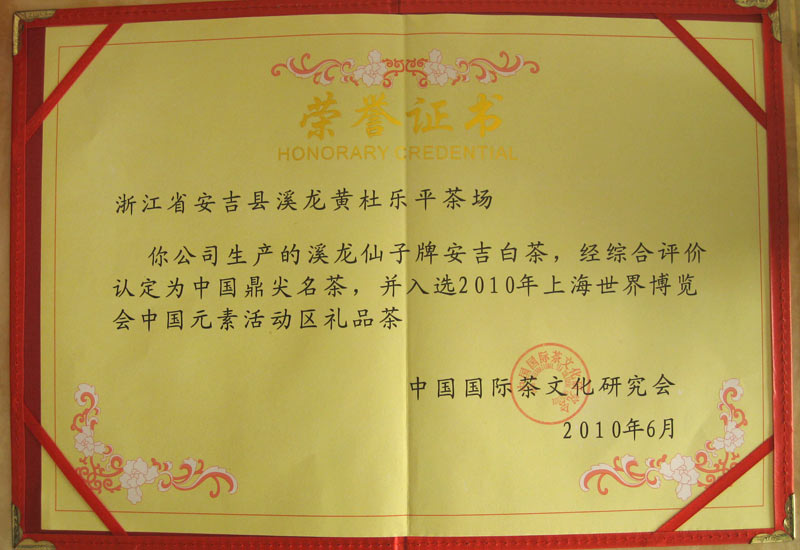 荣誉证书
HONORARY CREDENTIAL
浙江省安吉县溪龙黄杜乐平茶场
你公司生产的溪龙仙子牌安吉白茶，经综合评价
认定为中国鼎尖名茶，并入选2010年上海世界博览
会中国元素活动区礼品茶
中国国际茶文化研究会
2010年6月